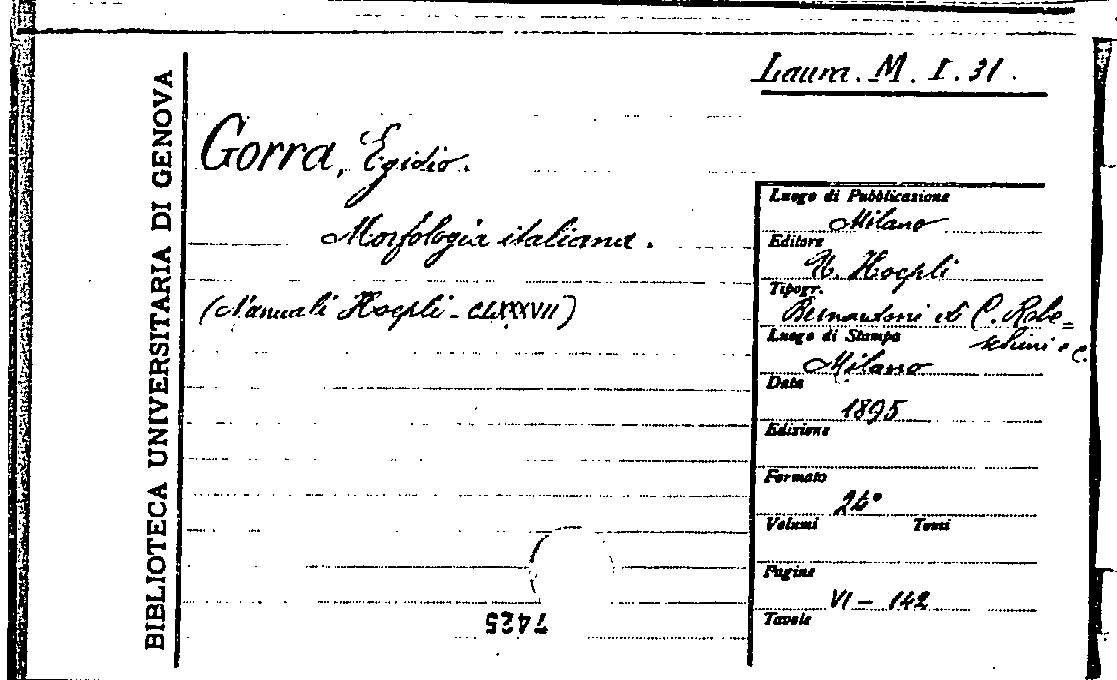 BIBLIOTECA UNIVERSITARIA DI GENOVA
Laura. M. I. 31.
Gorra, Egidio.
Morfologia italiana.
(Manuali Hoepli - CLXXXVII)
Luogo di Pubblicazione
Milano
Editore
U. Hoepli
Tipogr.
Bernardoni di C. Rebe=
schini e C.
Luogo di Stampa
Milano
Data
1895
Edizione
Formato
24°
Volumi Tomi
Pagine
VI - 142
Tavole
7425